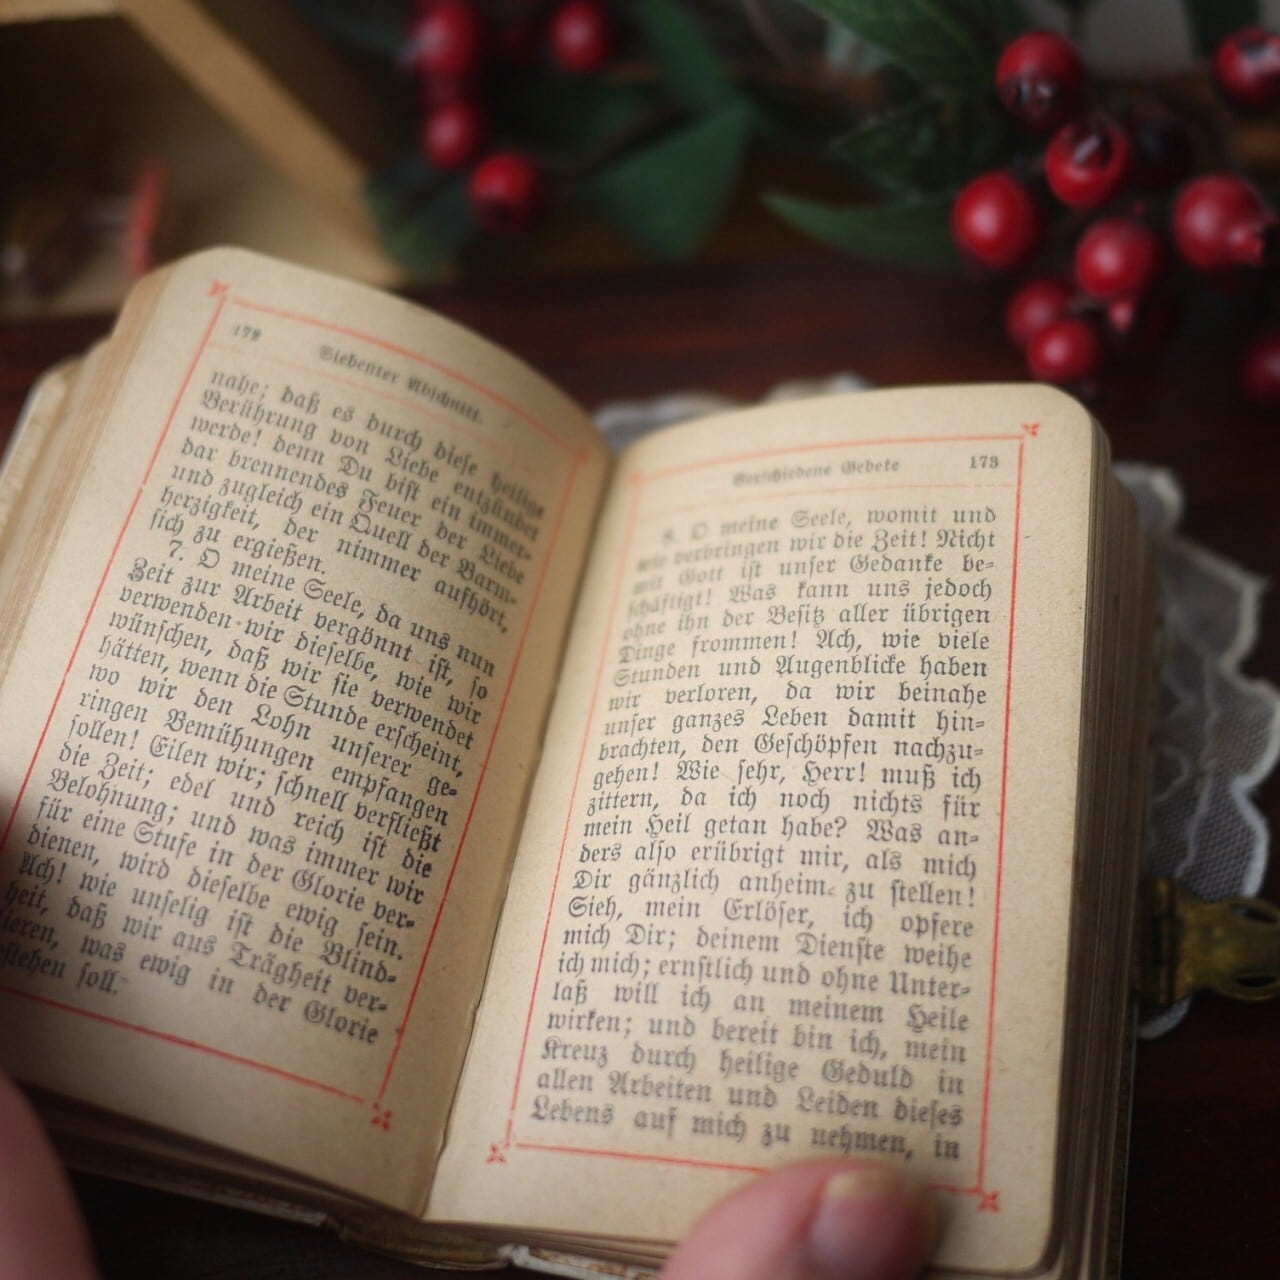 172
Siebenter Abschnitt.
nahe; daß es durch diese heilige
Berührung von Liebe entzündet
werde! denn Du bist ein immer-
dar brennendes Feuer der Liebe
und zugleich ein Quell der Barm-
herzigkeit, der nimmer aufhört,
sich zu ergießen.
7. O meine Seele, da uns nun
Zeit zur Arbeit vergönnt ist, so
verwenden wir dieselbe, wie wir
wünschen, daß wir sie verwendet
hätten, wenn die Stunde erscheint,
wo wir den Lohn unserer ge-
ringen Bemühungen empfangen
sollen! Eilen wir; schnell verfließt
die Zeit; edel und reich ist die
Belohnung; und was immer wir
für eine Stufe in der Glorie ver-
dienen, wird dieselbe ewig sein.
Ach! wie unselig ist die Blind-
heit, daß wir aus Trägheit ver-
lieren, was ewig in der Glorie
bestehen soll.
Verschiedene Gebete
173
8. O meine Seele, womit und
wie verbringen wir die Zeit! Nicht
mit Gott ist unser Gedanke be-
schäftigt! Was kann uns jedoch
ohne ihn der Besitz aller übrigen
Dinge frommen! Ach, wie viele
Stunden und Augenblicke haben
wir verloren, da wir beinahe
unser ganzes Leben damit hin-
brachten, den Geschöpfen nachzu-
gehen! Wie sehr, Herr! muß ich
zittern, da ich noch nichts für
mein Heil getan habe? Was an-
ders also erübrigt mir, als mich
Dir gänzlich anheim zu stellen!
Sieh, mein Erlöser, ich opfere
mich Dir; deinem Dienste weihe
ich mich; ernstlich und ohne Unter-
laß will ich an meinem Heile
wirken; und bereit bin ich, mein
Kreuz durch heilige Geduld in
allen Arbeiten und Leiden dieses
Lebens auf mich zu nehmen, in